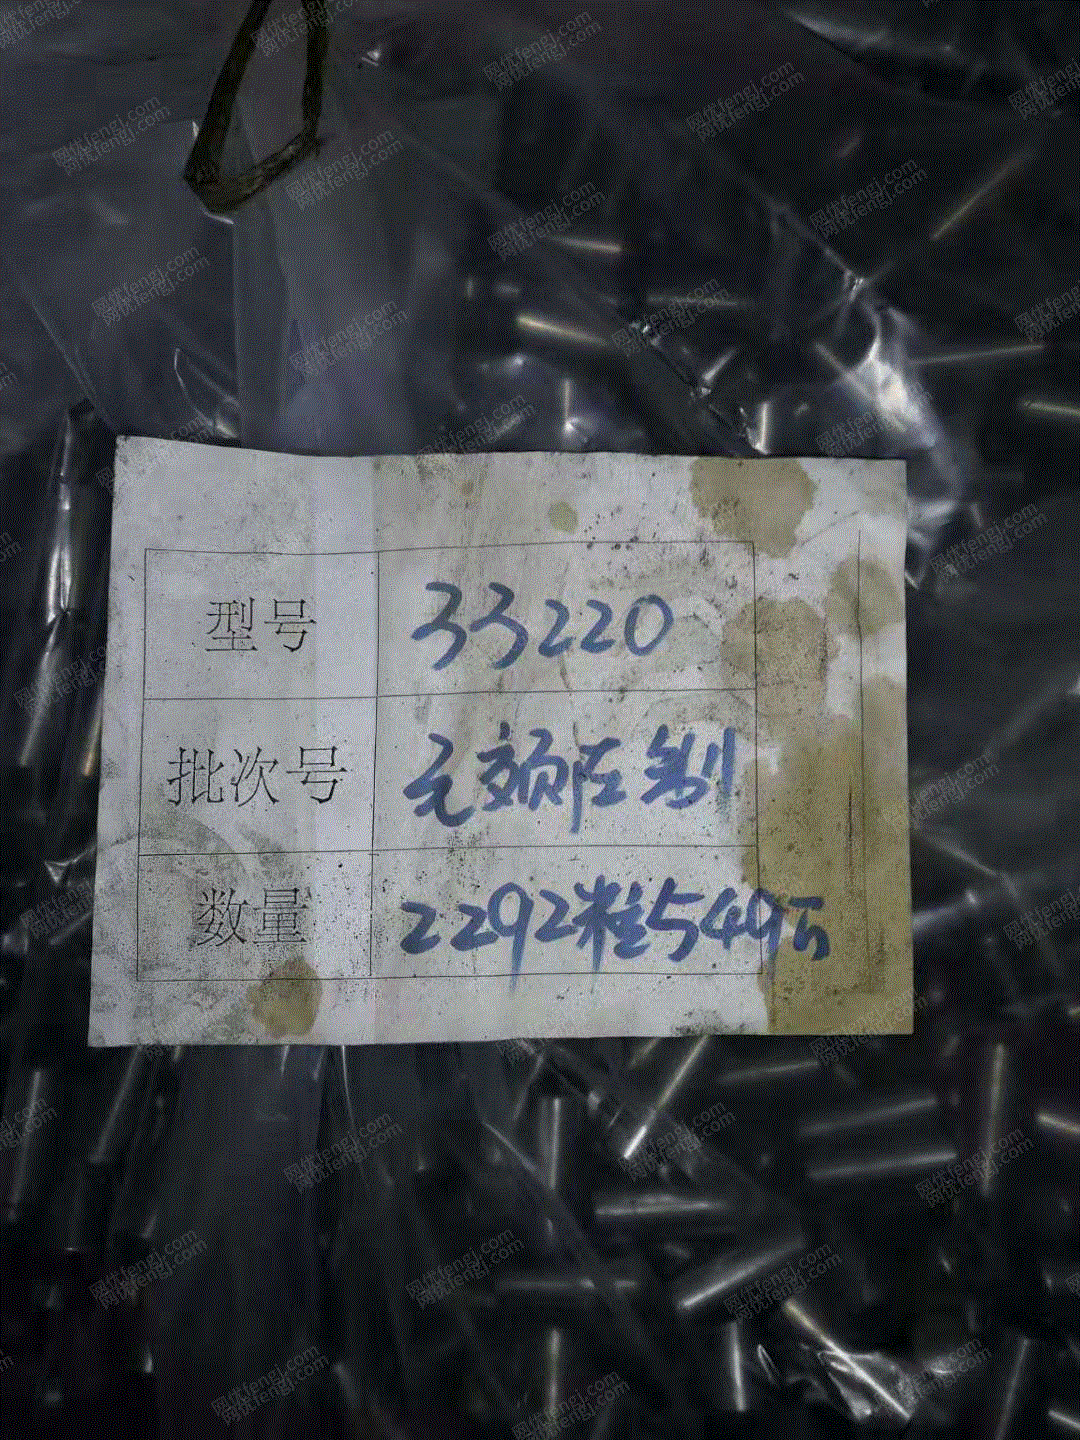 型号 33220
批次号 元颏压制
数量 2292粒549百
网优fengj.com